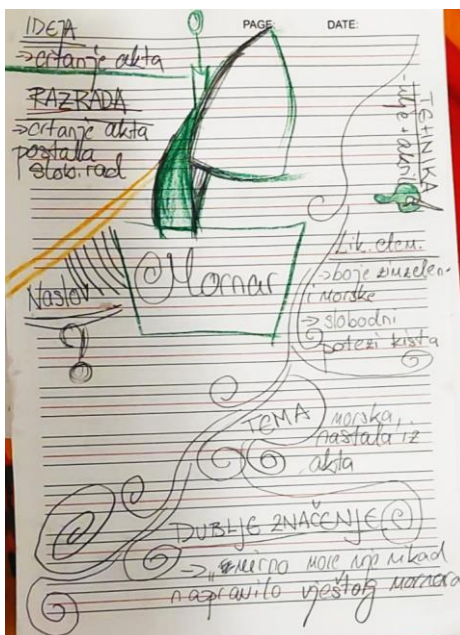 PAGE: DATE:
IDEJA
→ crtanje akta
RAZRADA
→ crtanje akta
postala
slob. rad
TEHNIKA
- ulje + akril
Lik. elem.
→ boje zimzelen
i morske
→ slobodni
potezi kista
Naslov
?
Mornar
TEMA
morska,
nastala iz
akta
DUBLJE ZNAČENJE
→ „mirno more nije nikad
napravilo vještog mornara